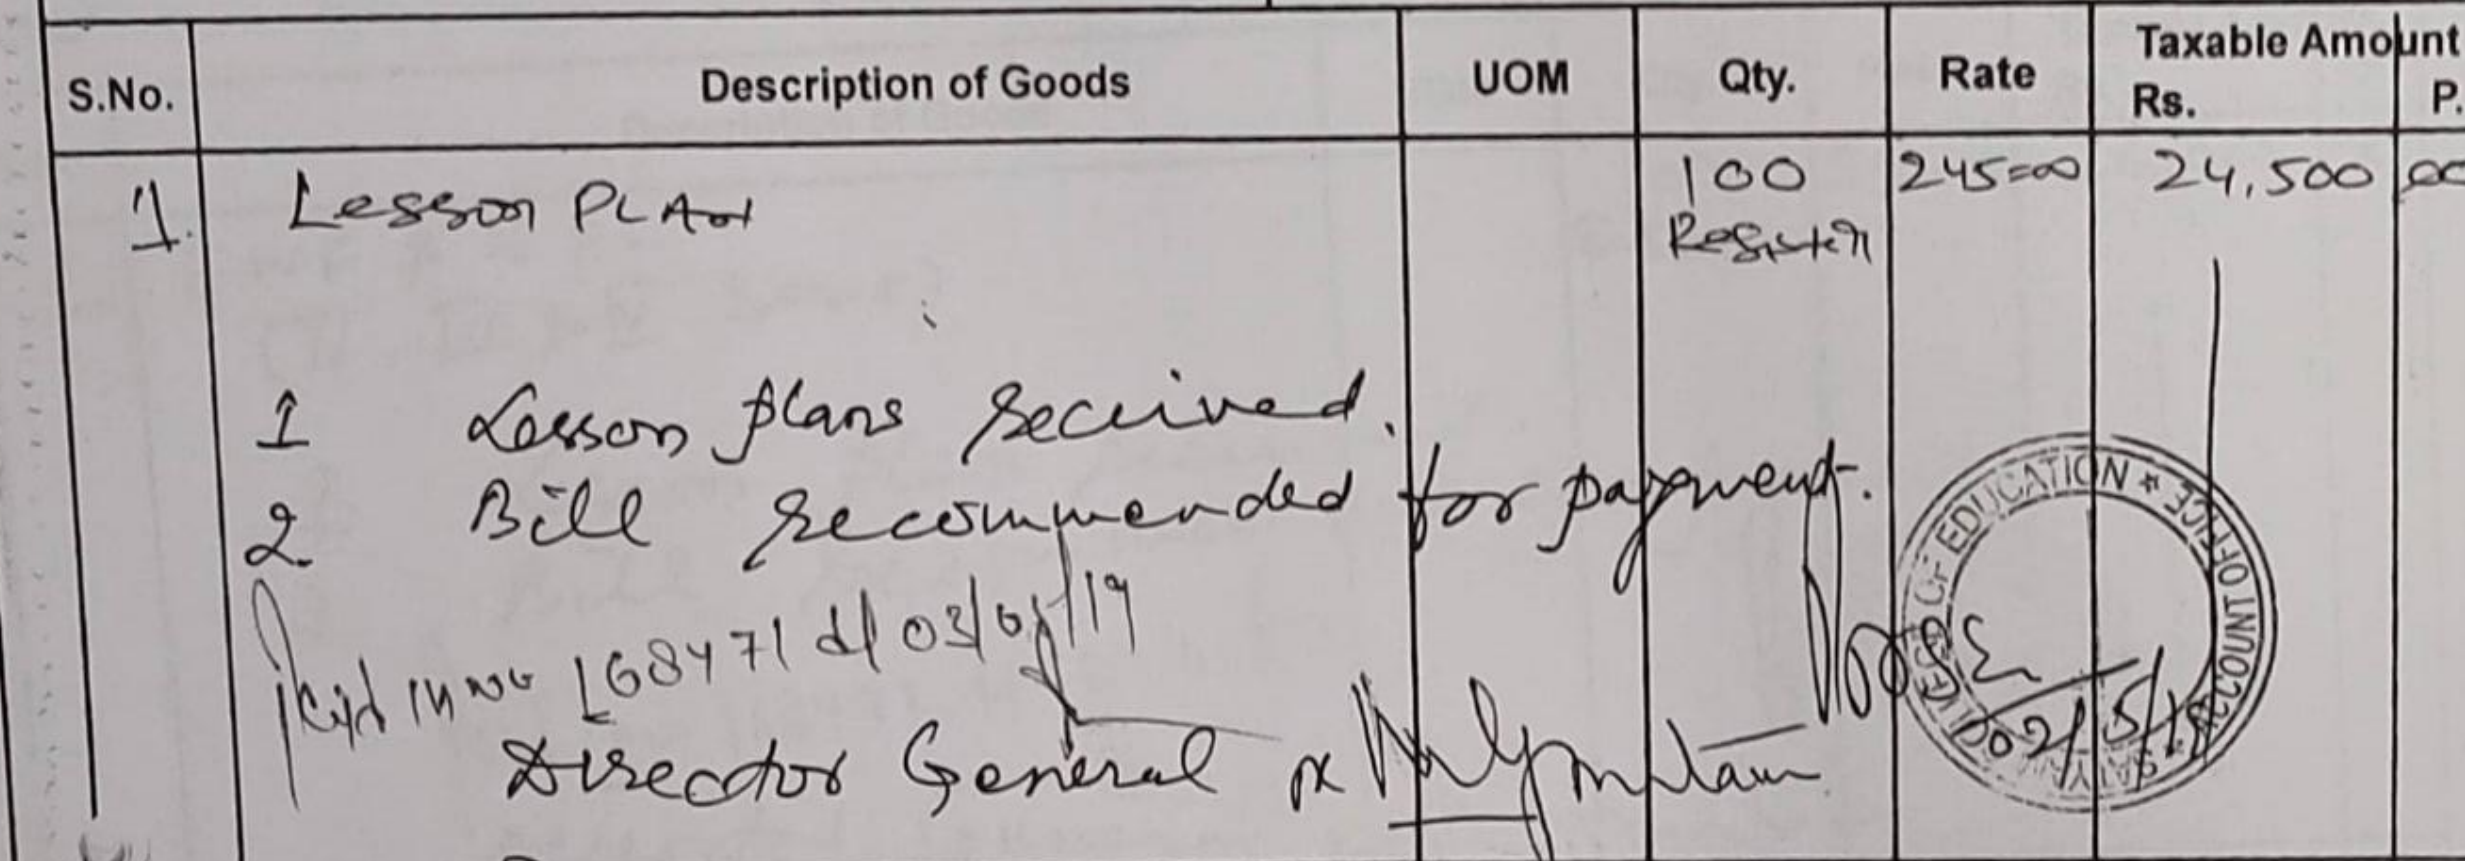 S.No. Description of Goods UOM Qty. Rate Taxable Amount
Rs. P.
1. Lesson PLAN 100 245=00 24,500 00
Register
1 Lesson plans received.
2 Bill recommended for payment.
168471 d/ 03/01/19
Director General
02/5/19
COLLEGE OF EDUCATION * ACCOUNT OFFICE * SATYAM